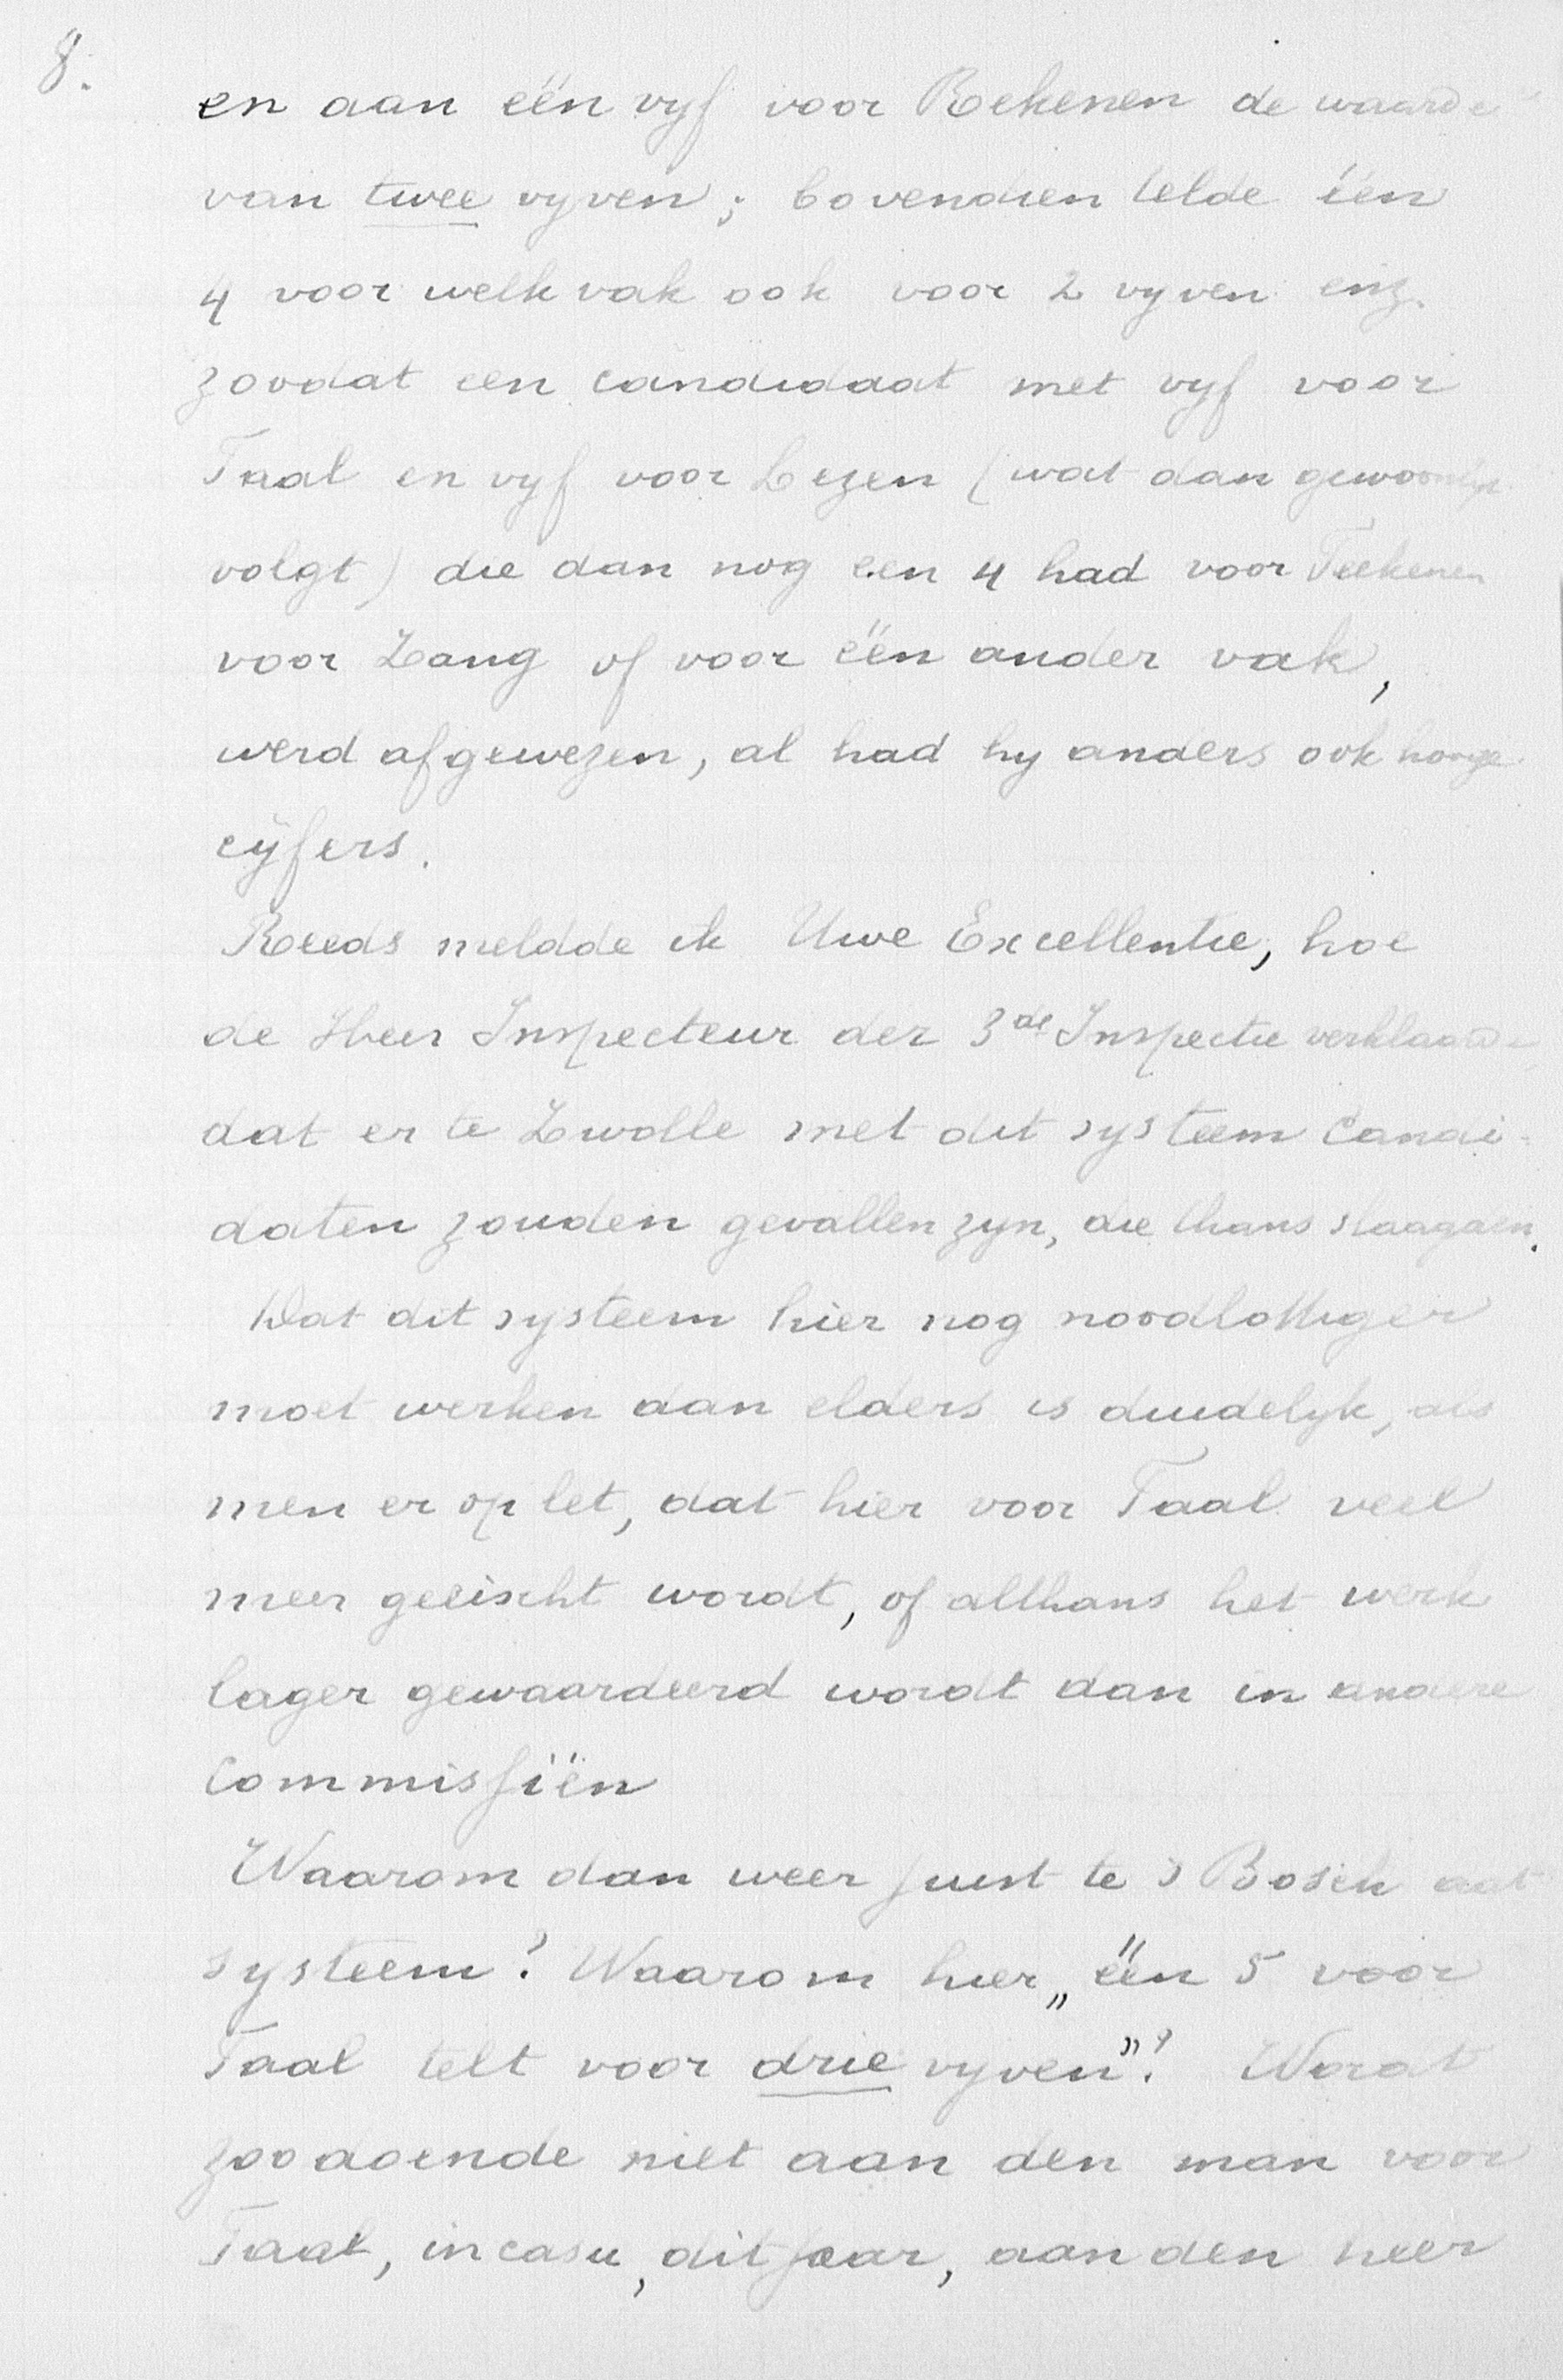 8.
en aan één vyf voor Rekenen de waarde
van twee vyven; bovendien telde één
4 voor welk vak ook voor 2 vyven enz.
zoodat een candidaat met vyf voor
Taal en vyf voor Lezen (wat dan gewoonlyk
volgt) die dan nog een 4 had voor Teekenen
voor Zang of voor één ander vak,
werd afgewezen, al had hy anders ook hooge
cijfers.
Reeds meldde ik Uwe Excellentie, hoe
de Heer Inspecteur der 3de Inspectie verklaarde
dat er te Zwolle met dit systeem candi-
daten zouden gevallen zyn, die thans slaagden.
Dat dit systeem hier nog noodlottiger
moet werken dan elders is duidelyk, als
men er op let, dat hier voor Taal veel
meer geëischt wordt, of althans het werk
lager gewaardeerd wordt dan in andere
commissiën
Waarom dan weer juist te 's Bosch dat
systeem? Waarom hier „één 5 voor
Taal telt voor drie vyven"? Wordt
zoodoende niet aan den man voor
Taal, in casu, dit jaar, aan den heer